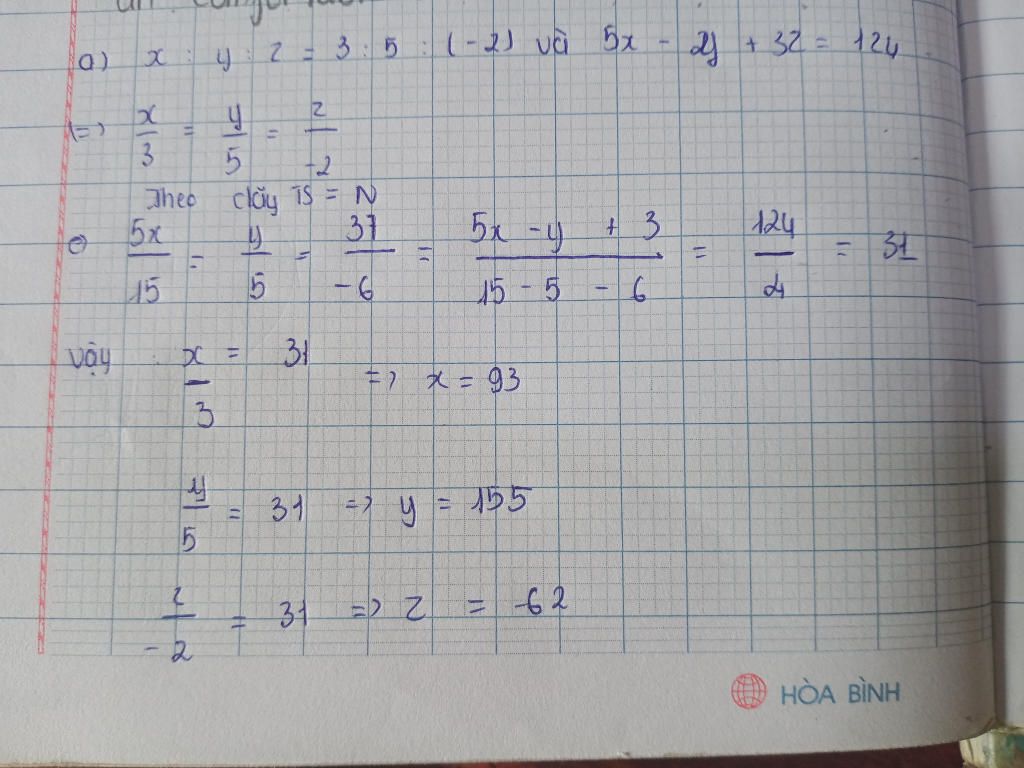 a) x : y : z = 3 : 5 : (-2) và 5x - 2y + 3z = 124
(=) x/3 = y/5 = z/-2
Theo dãy TS = N
5x/15 = y/5 = 37/-6 = 5x - y + 3/15 - 5 - 6 = 124/4 = 31
Vậy : x/3 = 31 => x = 93
y/5 = 31 => y = 155
z/-2 = 31 => z = -62
HÒA BÌNH